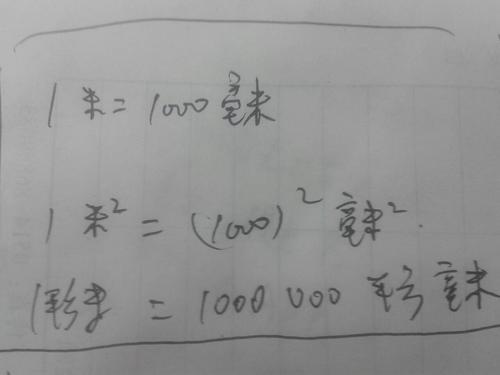 1米=1000毫米
1米²=(1000)²毫米².
1平方米=1000 000 平方毫米